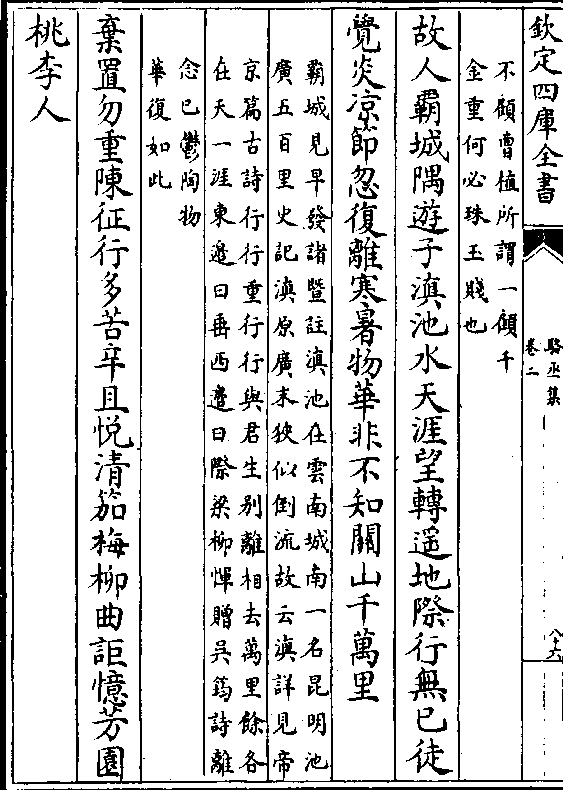 欽定四庫全書
駱丞集
卷二
八十六
不顧曹植所謂一顧千
金重何必珠玉賤也
故人霸城隅遊子滇池水天涯望轉遥地際行無已徒
覺炎凉節忽復離寒暑物華非不知關山千萬里
霸城見早發諸暨註滇池在雲南城南一名昆明池
廣五百里史記滇原廣末狹似倒流故云滇詳見帝
京篇古詩行行重行行與君生别離相去萬里餘各
在天一涯東邉曰垂西邉曰際梁柳惲贈吳筠詩離
念已鬱陶物
華復如此
棄置勿重陳征行多苦辛且悦清笳梅柳曲詎憶芳園
桃李人